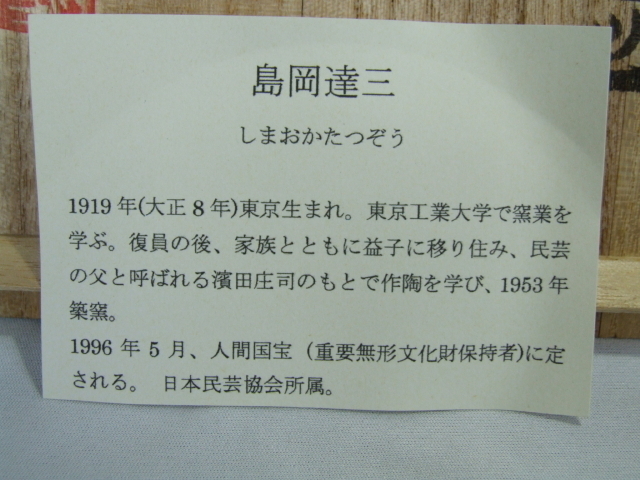 島岡達三
しまおかたつぞう
1919 年(大正 8 年)東京生まれ。東京工業大学で窯業を
学ぶ。復員の後、家族とともに益子に移り住み、民芸
の父と呼ばれる濱田庄司のもとで作陶を学び、1953 年
築窯。
1996 年 5 月、人間国宝（重要無形文化財保持者)に定
される。 日本民芸協会所属。